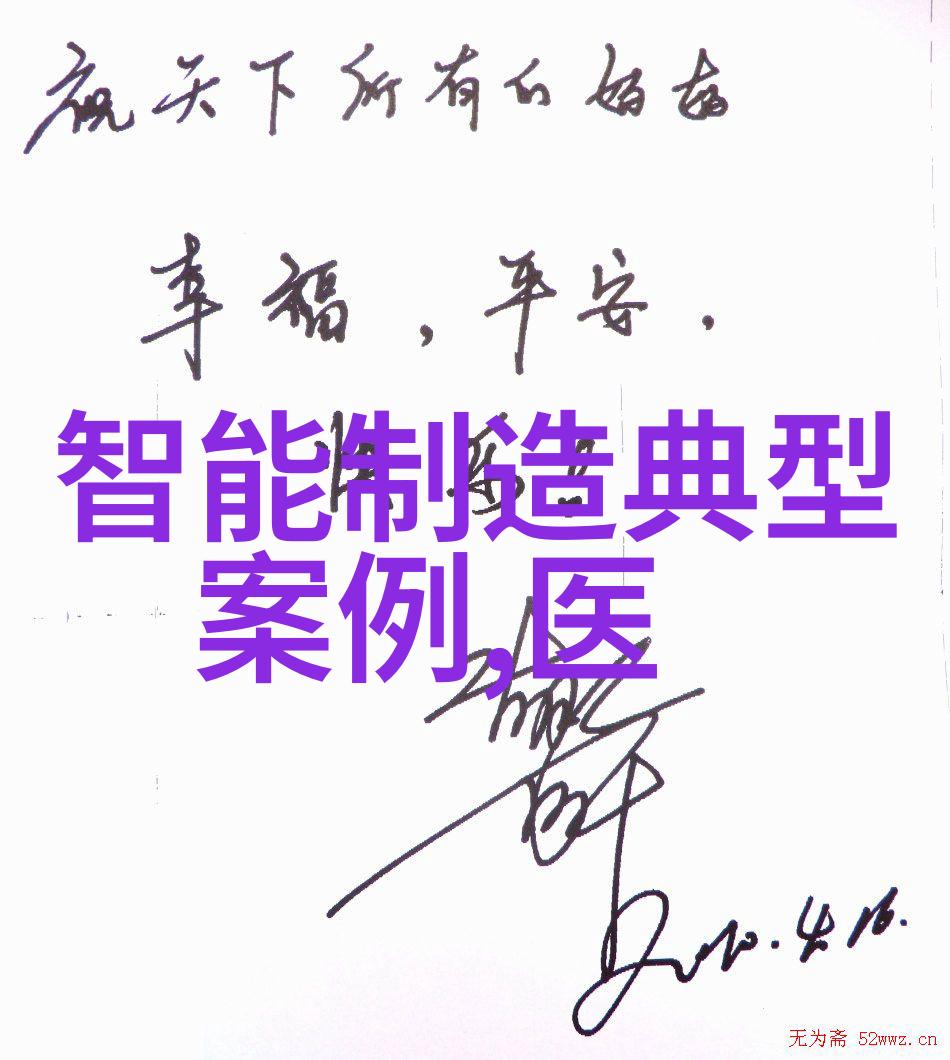 祝天下所有的妈妈
幸福，平安，
智能制造典型
案例,医
2010.4.16.
无为斋 52wwz.cn